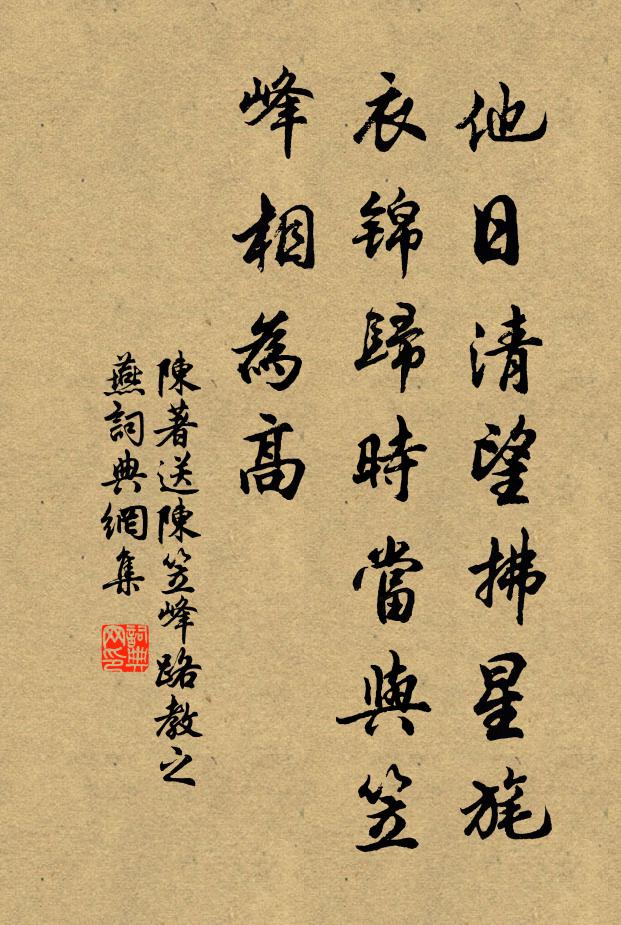 他日清望拂星旄
衣錦歸時當與笠
峰相為高
陳著送陳笠峰路教之
燕詞典網集
詞典网印